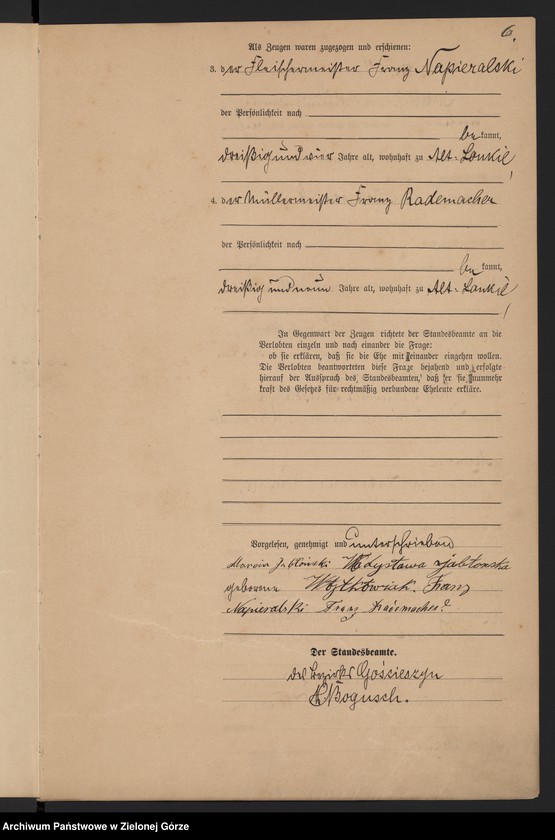 6.
Als Zeugen waren zugezogen und erschienen:
3. der Fleischermeister Franz Napieralski
der Persönlichkeit nach
be kannt,
dreißig und vier Jahre alt, wohnhaft zu Alt-Lonkie,
4. der Müllermeister Franz Rademacher
der Persönlichkeit nach
be kannt,
dreißig und neun Jahre alt, wohnhaft zu Alt-Lonkie,
In Gegenwart der Zeugen richtete der Standesbeamte an die
Verlobten einzeln und nach einander die Frage:
ob sie erklären, daß sie die Ehe mit einander eingehen wollen.
Die Verlobten beantworteten diese Frage bejahend und erfolgte
hierauf der Ausspruch des Standesbeamten, daß er sie nunmehr
kraft des Gesetzes für rechtmäßig verbundene Eheleute erkläre.
Vorgelesen, genehmigt und unterschrieben
Marcin Jabłoński Władysława Jabłonska
geborene Wojtkowiak. Franz
Napieralski Franz Rademacher
Der Standesbeamte.
des Bezirks Gościeszyn
Bogusch.
Archiwum Państwowe w Zielonej Górze